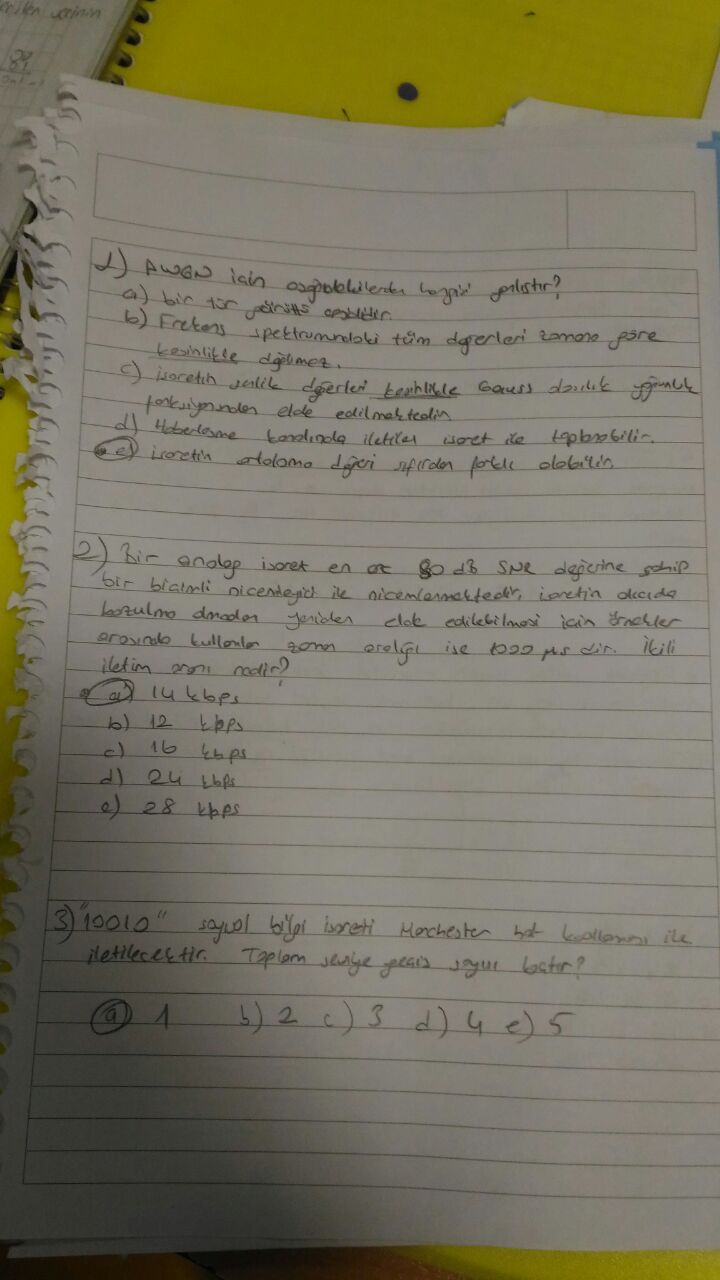 1) AWGN için aşağıdakilerden hangisi yanlıştır?
a) bir tür gürültü çeşididir.
b) Frekans spektrumundaki tüm değerleri zamana göre
kesinlikle değişmez.
c) işaretin genlik değerleri kesinlikle Gauss dağılık yoğunluk
fonksiyonundan elde edilmektedir
d) Haberleşme kanalında iletilen işaret ile toplanabilir.
e) işaretin ortalama değeri sıfırdan farklı olabilir.
2) Bir analog işaret en az 80 dB SNR değerine sahip
bir biçimli nicemleyici ile nicemlenmektedir, işaretin alıcıda
bozulma olmadan yeniden elde edilebilmesi için örnekler
arasında kullanılan zaman aralığı ise 1000 μs dir. İkili
iletim oranı nedir?
a) 14 kbps
b) 12 kbps
c) 16 kbps
d) 24 kbps
e) 28 kbps
3) "10010" sayısal bilgi işareti Manchester hat kodlaması ile
iletilecektir. Toplam seviye geçiş sayısı kaçtır?
a) 1 b) 2 c) 3 d) 4 e) 5